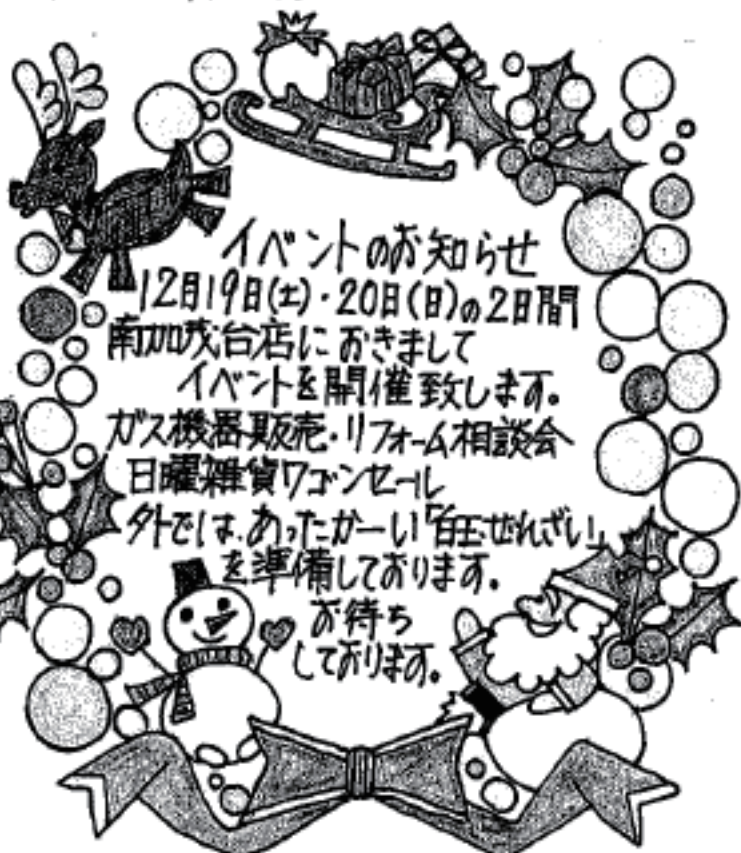 イベントのお知らせ
12月19日(土)・20日(日)の2日間
南加茂台店におきまして
イベントを開催致します。
ガス機器販売・リフォーム相談会
日曜雑貨ワゴンセール
外では、あったかーい「白玉ぜんざい」
を準備しております。
お待ち
しております。